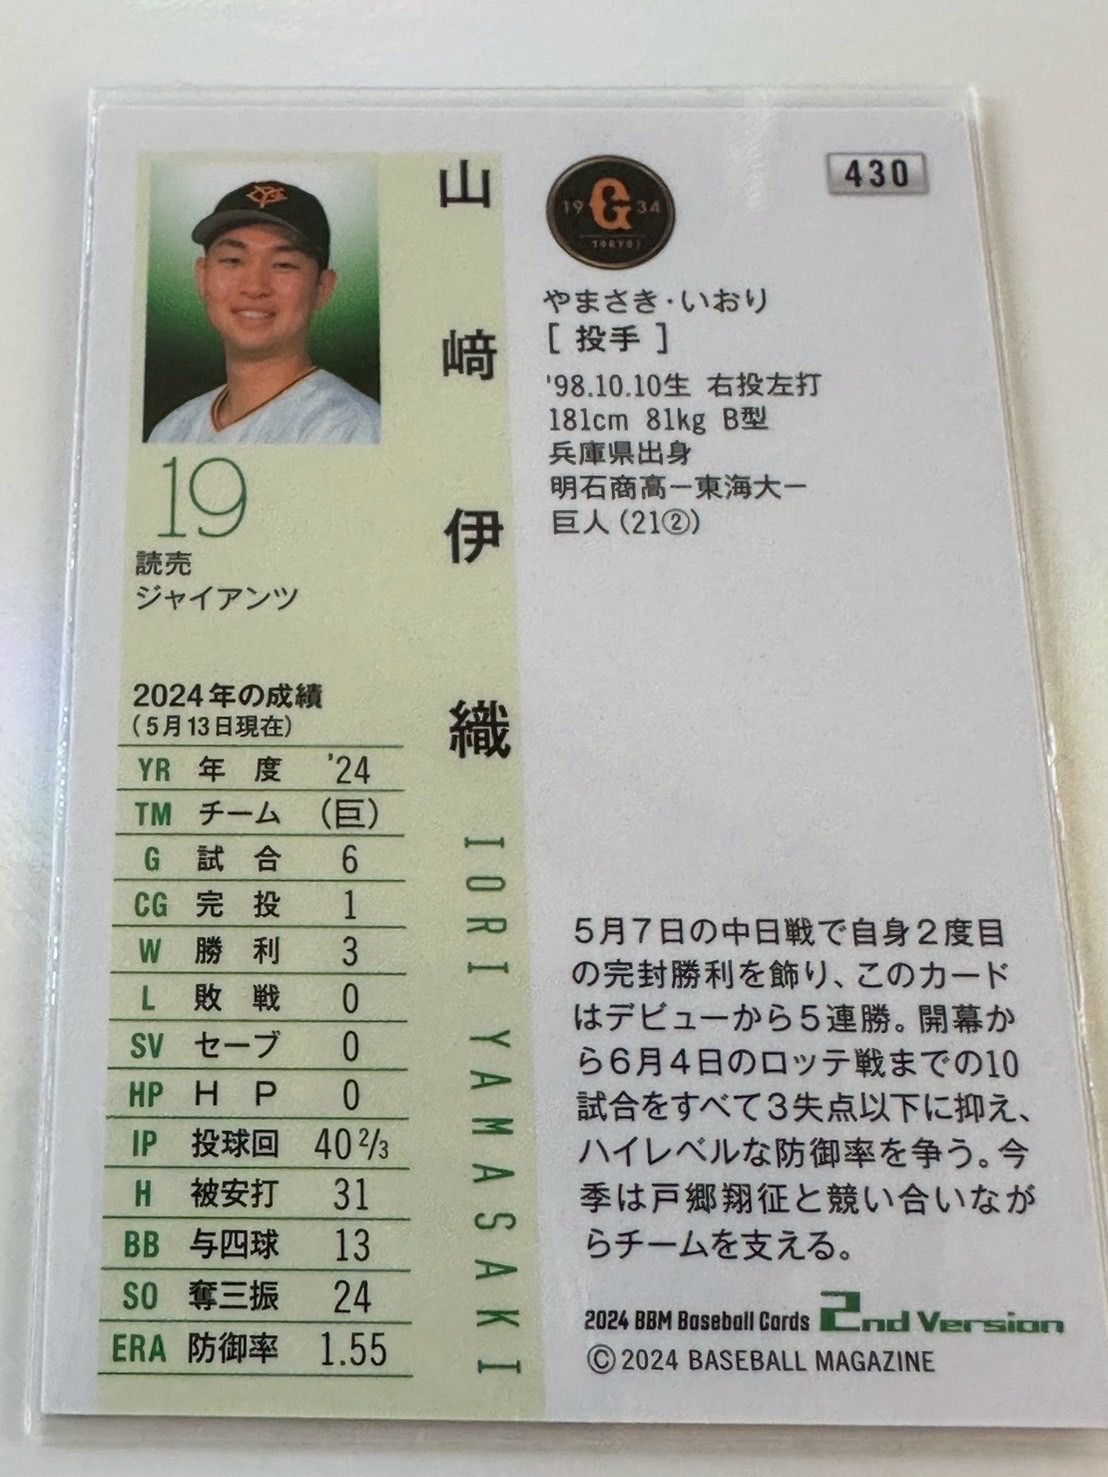 430
19 G 34
TOKYO
山﨑伊織
IORI YAMASAKI
やまさき・いおり
[ 投手 ]
'98.10.10生 右投左打
181cm 81kg B型
兵庫県出身
明石商高－東海大－
巨人(21②)
19
読売
ジャイアンツ
2024年の成績
(5月13日現在)
YR 年度 '24
TM チーム (巨)
G 試合 6
CG 完投 1
W 勝利 3
L 敗戦 0
SV セーブ 0
HP HP 0
IP 投球回 40 2/3
H 被安打 31
BB 与四球 13
SO 奪三振 24
ERA 防御率 1.55
5月7日の中日戦で自身2度目
の完封勝利を飾り、このカード
はデビューから5連勝。開幕か
ら6月4日のロッテ戦までの10
試合をすべて3失点以下に抑え、
ハイレベルな防御率を争う。今
季は戸郷翔征と競い合いなが
らチームを支える。
2024 BBM Baseball Cards 2nd Version
©2024 BASEBALL MAGAZINE